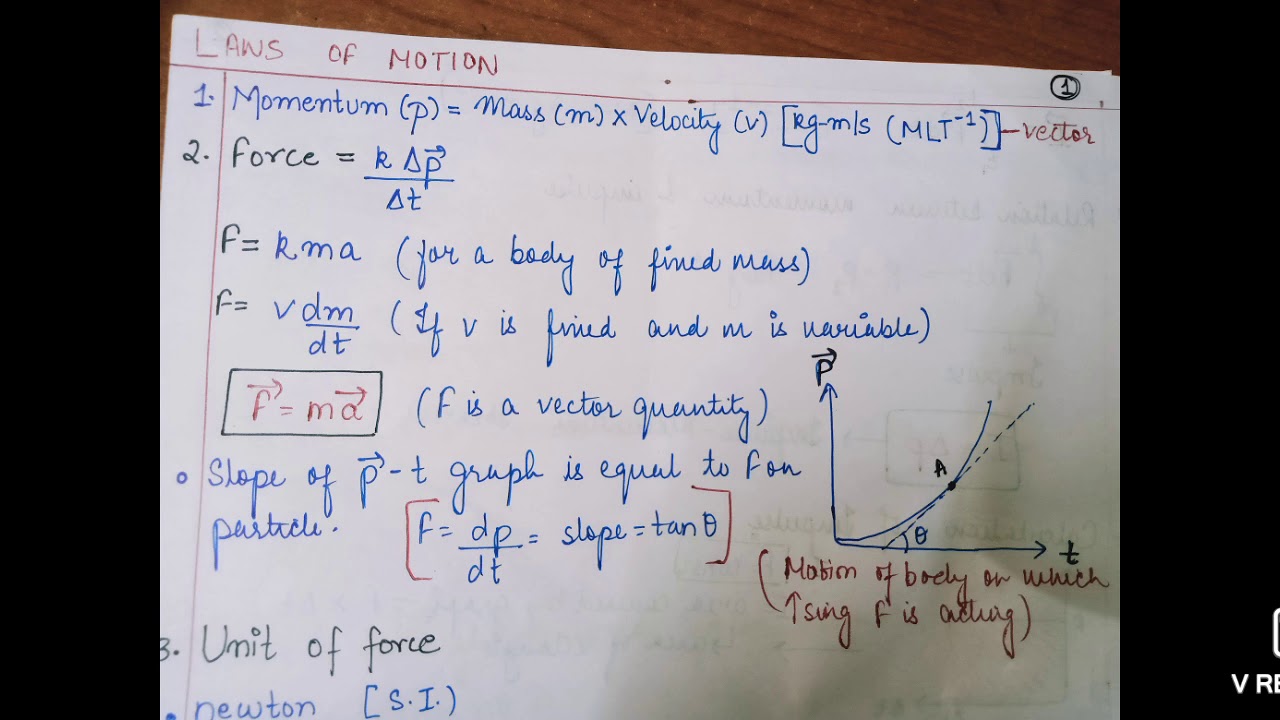 LAWS OF MOTION
1
1. Momentum (p) = Mass (m) x Velocity (v) [kg-m/s (MLT⁻¹)] - vector
2. Force = k Δp⃗ / Δt
F = kma (for a body of fixed mass)
F = v dm/dt (If v is fixed and m is variable)
F⃗ = ma⃗ (F is a vector quantity)
• Slope of p⃗-t graph is equal to F on
particle. [F = dp/dt = slope = tanθ]
P⃗
A
θ
t
(Motion of body on which
↑sing F is acting)
3. Unit of force
• newton [S.I.)
V RE